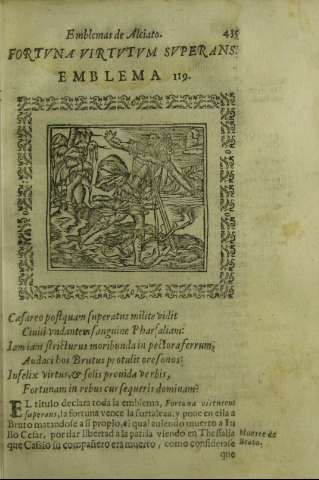 Emblemas de Alciato. 435
FORTVNA VIRTVTVM SVPERANS.
EMBLEMA 119.
Cæsareo postquam superatus milite vidit
Ciuili vndantem sanguine Pharsaliam:
Iam iam stricturus moribunda in pectora ferrum,
Audaci hos Brutus protulit ore sonos:
Infelix virtus, & solis prouida verbis,
Fortunam in rebus cur sequeris dominam?
EL titulo declara toda la emblema, Fortuna virtutem
superans, la fortuna vence la fortaleza, y pone en ella a
Bruto matandose a si proprio, el qual auiendo muerto a Iu
lio Cesar, por dar libertad a la patria viendo en Thessalia
Muerte de
Bruto.
que Cassio su compañero era muerto, como considerase
que